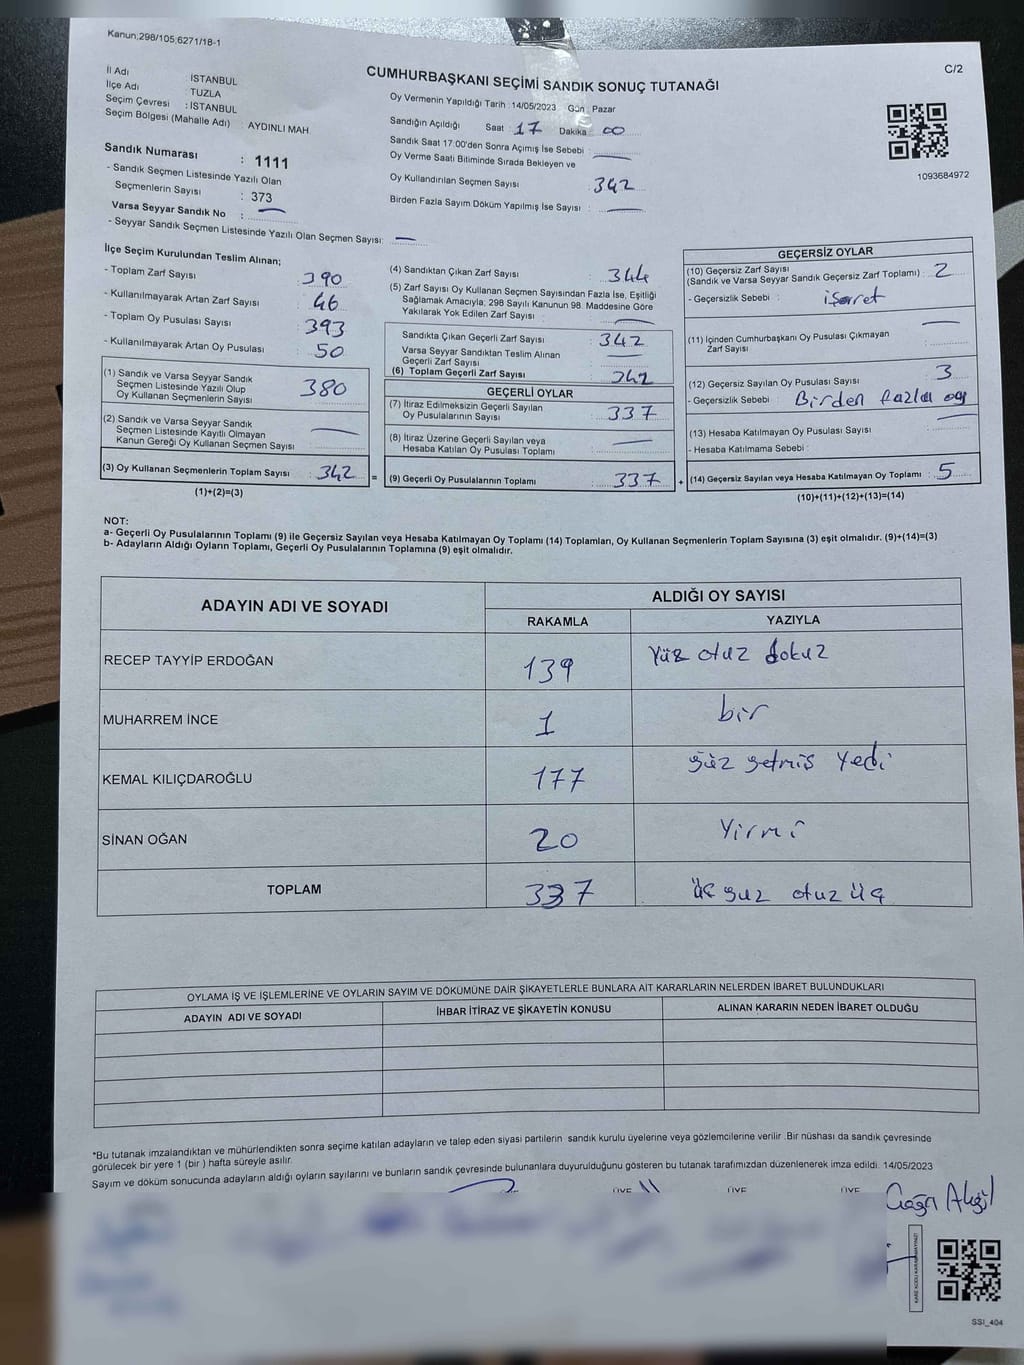 Kanun;298/105;6271/18-1
C/2
CUMHURBAŞKANI SEÇİMİ SANDIK SONUÇ TUTANAĞI
İl Adı : İSTANBUL
İlçe Adı : TUZLA
Seçim Çevresi : İSTANBUL
Seçim Bölgesi (Mahalle Adı) : AYDINLI MAH.
Sandık Numarası : 1111
- Sandık Seçmen Listesinde Yazılı Olan
Seçmenlerin Sayısı : 373
Varsa Seyyar Sandık No :
- Seyyar Sandık Seçmen Listesinde Yazılı Olan Seçmen Sayısı:
Oy Vermenin Yapıldığı Tarih :14/05/2023 Gün : Pazar
Sandığın Açıldığı Saat : 17 Dakika 00
Sandık Saat 17:00'den Sonra Açımış İse Sebebi :
Oy Verme Saati Bitiminde Sırada Bekleyen ve
Oy Kullandırılan Seçmen Sayısı : 342
Birden Fazla Sayım Döküm Yapılmış İse Sayısı :
1093684972
İlçe Seçim Kurulundan Teslim Alınan;
- Toplam Zarf Sayısı : 390
- Kullanılmayarak Artan Zarf Sayısı : 46
- Toplam Oy Pusulası Sayısı : 393
- Kullanılmayarak Artan Oy Pusulası : 50
(1) Sandık ve Varsa Seyyar Sandık
Seçmen Listesinde Yazılı Olup
Oy Kullanan Seçmenlerin Sayısı : 380
(2) Sandık ve Varsa Seyyar Sandık
Seçmen Listesinde Kayıtlı Olmayan
Kanun Gereği Oy Kullanan Seçmen Sayısı :
(3) Oy Kullanan Seçmenlerin Toplam Sayısı : 342
(1)+(2)=(3)
(4) Sandıktan Çıkan Zarf Sayısı : 344
(5) Zarf Sayısı Oy Kullanan Seçmen Sayısından Fazla İse, Eşitliği
Sağlamak Amacıyla; 298 Sayılı Kanunun 98. Maddesine Göre
Yakılarak Yok Edilen Zarf Sayısı :
Sandıkta Çıkan Geçerli Zarf Sayısı : 342
Varsa Seyyar Sandıktan Teslim Alınan
Geçerli Zarf Sayısı :
(6) Toplam Geçerli Zarf Sayısı : 342
GEÇERLİ OYLAR
(7) İtiraz Edilmeksizin Geçerli Sayılan
Oy Pusulalarının Sayısı : 337
(8) İtiraz Üzerine Geçerli Sayılan veya
Hesaba Katılan Oy Pusulası Toplamı :
= (9) Geçerli Oy Pusulalarının Toplamı : 337
GEÇERSİZ OYLAR
(10) Geçersiz Zarf Sayısı
(Sandık ve Varsa Seyyar Sandık Geçersiz Zarf Toplamı) : 2
- Geçersizlik Sebebi : işaret
(11) İçinden Cumhurbaşkanı Oy Pusulası Çıkmayan
Zarf Sayısı :
(12) Geçersiz Sayılan Oy Pusulası Sayısı : 3
- Geçersizlik Sebebi : Birden fazla oy
(13) Hesaba Katılmayan Oy Pusulası Sayısı :
- Hesaba Katılmama Sebebi :
+ (14) Geçersiz Sayılan veya Hesaba Katılmayan Oy Toplamı : 5
(10)+(11)+(12)+(13)=(14)
NOT:
a- Geçerli Oy Pusulalarının Toplamı (9) ile Geçersiz Sayılan veya Hesaba Katılmayan Oy Toplamı (14) Toplamları, Oy Kullanan Seçmenlerin Toplam Sayısına (3) eşit olmalıdır. (9)+(14)=(3)
b- Adayların Aldığı Oyların Toplamı, Geçerli Oy Pusulalarının Toplamına (9) eşit olmalıdır.
ADAYIN ADI VE SOYADI
ALDIĞI OY SAYISI
RAKAMLA YAZIYLA
RECEP TAYYİP ERDOĞAN 139 Yüz otuz dokuz
MUHARREM İNCE 1 bir
KEMAL KILIÇDAROĞLU 177 yüz yetmiş yedi
SİNAN OĞAN 20 Yirmi
TOPLAM 337 üç yuz otuz üç
OYLAMA İŞ VE İŞLEMLERİNE VE OYLARIN SAYIM VE DÖKÜMÜNE DAİR ŞİKAYETLERLE BUNLARA AİT KARARLARIN NELERDEN İBARET BULUNDUKLARI
ADAYIN ADI VE SOYADI İHBAR İTİRAZ VE ŞİKAYETİN KONUSU ALINAN KARARIN NEDEN İBARET OLDUĞU
*Bu tutanak imzalandıktan ve mühürlendikten sonra seçime katılan adayların ve talep eden siyasi partilerin sandık kurulu üyelerine veya gözlemcilerine verilir .Bir nüshası da sandık çevresinde
görülecek bir yere 1 (bir ) hafta süreyle asılır.
Sayım ve döküm sonucunda adayların aldığı oyların sayılarını ve bunların sandık çevresinde bulunanlara duyurulduğunu gösteren bu tutanak tarafımızdan düzenlenerek imza edildi. 14/05/2023
ÜYE ÜYE ÜYE
SSI_404